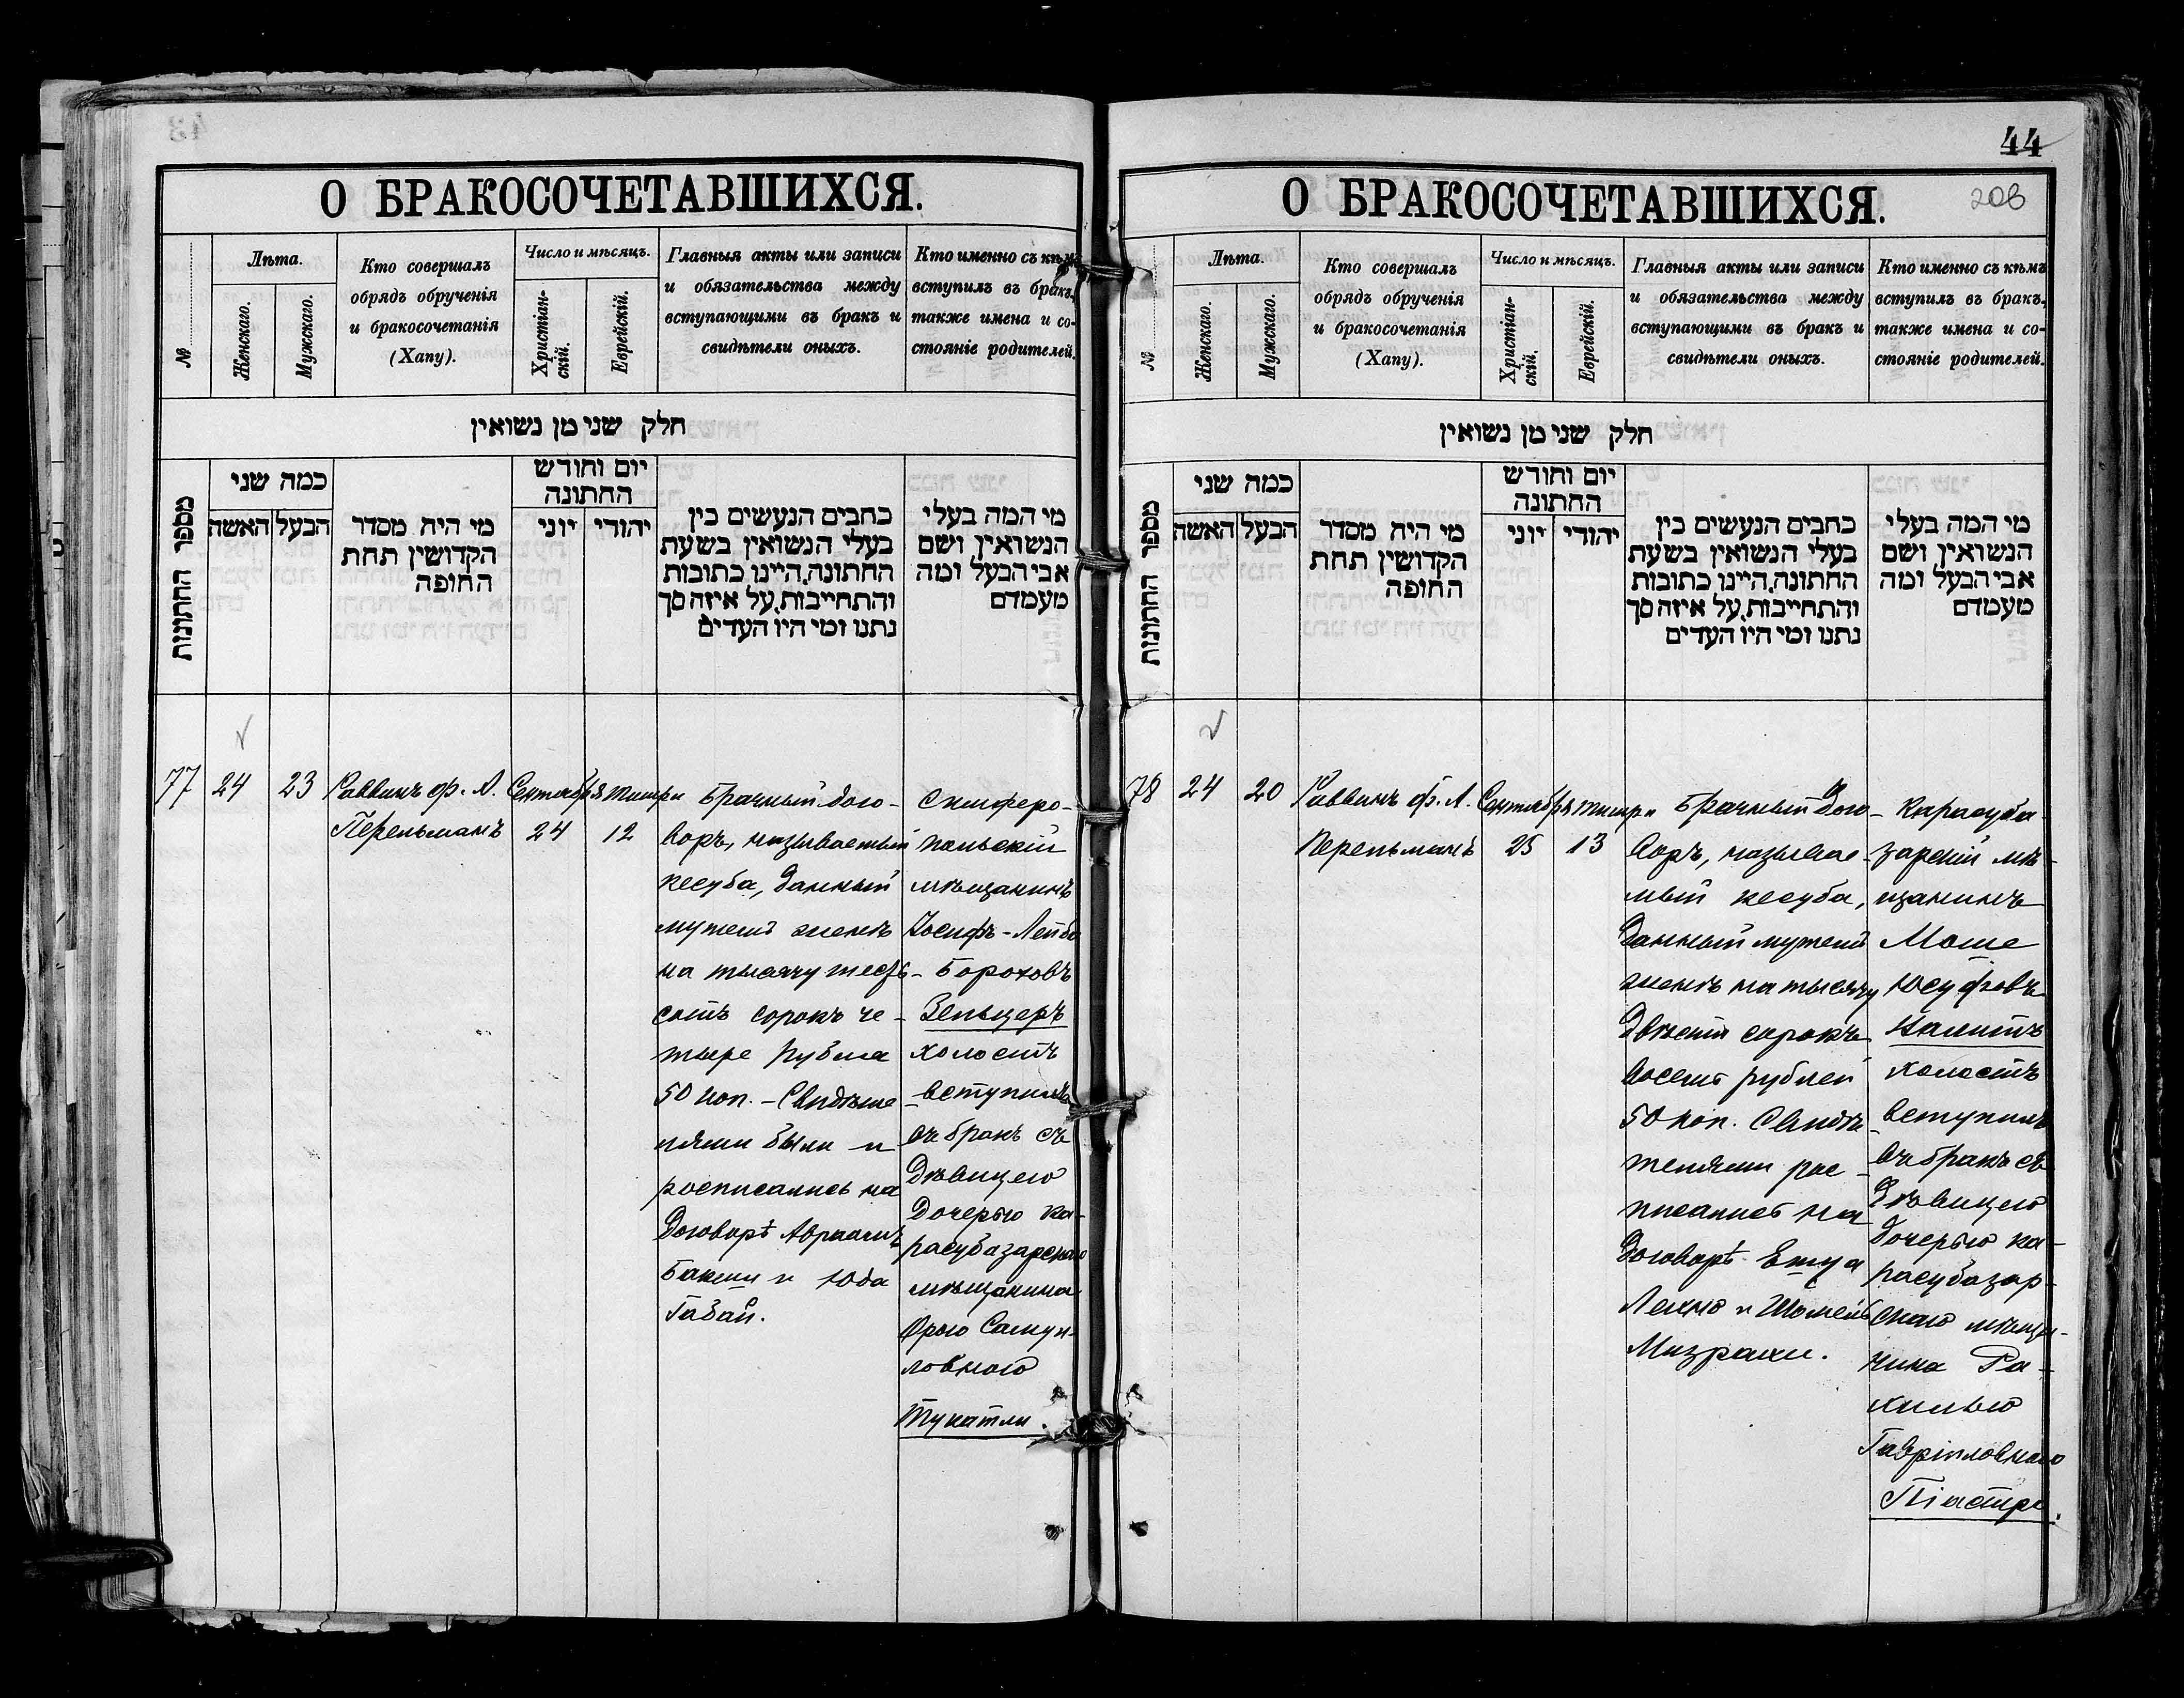 О БРАКОСОЧЕТАВШИХСЯ.
№
Лѣта.
Женскаго.
Мужскаго.
Кто совершалъ
обрядъ обрученія
и бракосочетанія
(Хапу).
Число и мѣсяцъ.
Христіан-
скій.
Еврейскій.
Главныя акты или записи
и обязательства между
вступающими въ бракъ и
свидѣтели оныхъ.
Кто именно съ кѣмъ
вступилъ въ бракъ,
также имена и со-
стояніе родителей.
חלק שני מן נשואין
מספר החתונות
כמה שני
האשה
הבעל
מי היה מסדר
הקדושין תחת
החופה
יום וחודש
החתונה
יוני
יהודי
כתבים הנעשים בין
בעלי הנשואין בשעת
החתונה, היינו כתובות
והתחייבות, על איזה סך
נתנו ומי היו העדים
מי המה בעלי
הנשואין, ושם
אבי הבעל ומה
מעמדם
77
24
23
Раввинъ Ф. Л.
Перельманъ
Сентября
24
Тишри
12
Брачный дого-
воръ, называемый
кесуба, данный
мужемъ женѣ
на тысячу двѣ-
сотъ сорокъ че-
тыре рубля
50 коп. - Свидѣте
лями были и
росписались на
договорѣ Авраамъ
Бакши и Юда
Габай.
Симферо-
польскій
мѣщанинъ
Іосифъ-Лейба
Бороховъ
Зельцеръ
холостъ
вступилъ
въ бракъ съ
дѣвицею
дочерью ка-
расубазарскаго
мѣщанина
Фрою Самуи-
ловною
Тукатли.
44
208
О БРАКОСОЧЕТАВШИХСЯ.
№
Лѣта.
Женскаго.
Мужскаго.
Кто совершалъ
обрядъ обрученія
и бракосочетанія
(Хапу).
Число и мѣсяцъ.
Христіан-
скій.
Еврейскій.
Главныя акты или записи
и обязательства между
вступающими въ бракъ и
свидѣтели оныхъ.
Кто именно съ кѣмъ
вступилъ въ бракъ,
также имена и со-
стояніе родителей.
חלק שני מן נשואין
מספר החתונות
כמה שני
האשה
הבעל
מי היה מסדר
הקדושין תחת
החופה
יום וחודש
החתונה
יוני
יהודי
כתבים הנעשים בין
בעלי הנשואין בשעת
החתונה, היינו כתובות
והתחייבות, על איזה סך
נתנו ומי היו העדים
מי המה בעלי
הנשואין, ושם
אבי הבעל ומה
מעמדם
78
24
20
Раввинъ Ф. Л.
Перельманъ
Сентября
25
Тишри
13
Брачный дого-
воръ, называе-
мый кесуба,
данный мужемъ
женѣ на тысячу
двѣсти сорокъ
восемь рублей
50 коп. Свидѣ
телями рос-
писались на
договорѣ Ешуа
Лехно и
Мизрахи.
Карасуба-
зарскій мѣ-
щанинъ
Моше
Юсуфовъ
холостъ
вступилъ
въ бракъ съ
дѣвицею
дочерью ка-
расубазар-
скаго мѣща-
нина Ра-
хилью
Гавріиловною
Піастро.